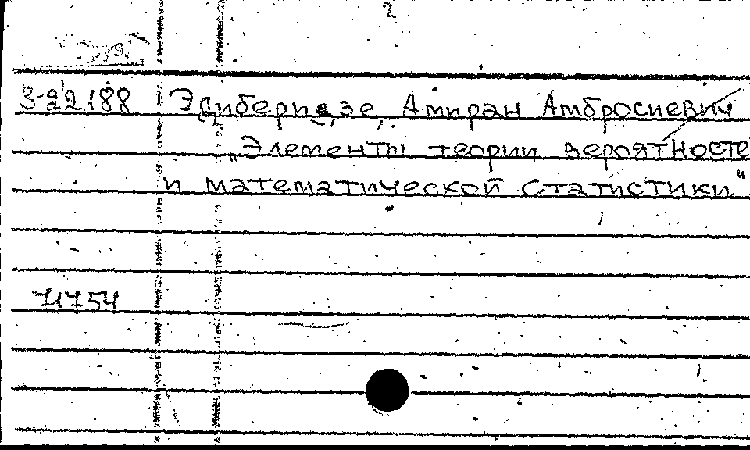 Э-22188 Эсиберидзе, Амиран Амбросиевич
„Элементы теории вероятносте
и математической статистики"
71754